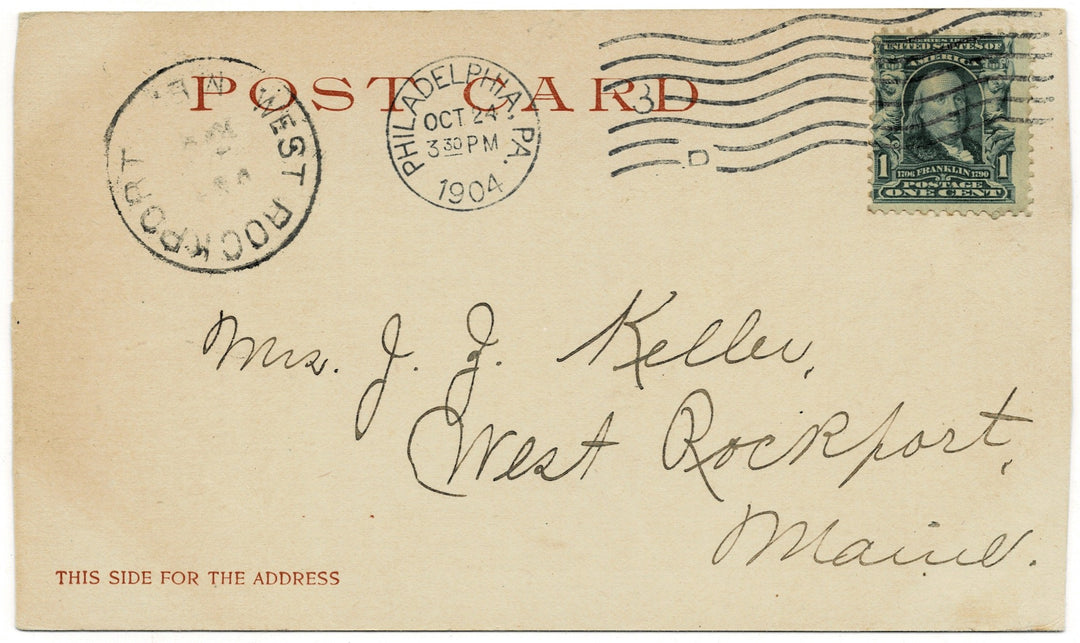 POST CARD
WEST ROCKPORT ME.
PHILADELPHIA, PA.
OCT 24
3 30 PM
1904
3
D
SERIES 1902
UNITED STATES OF
AMERICA
1 1
1706 FRANKLIN 1790
POSTAGE
ONE CENT
Mrs. J. J. Keller,
West Rockport,
Maine.
THIS SIDE FOR THE ADDRESS